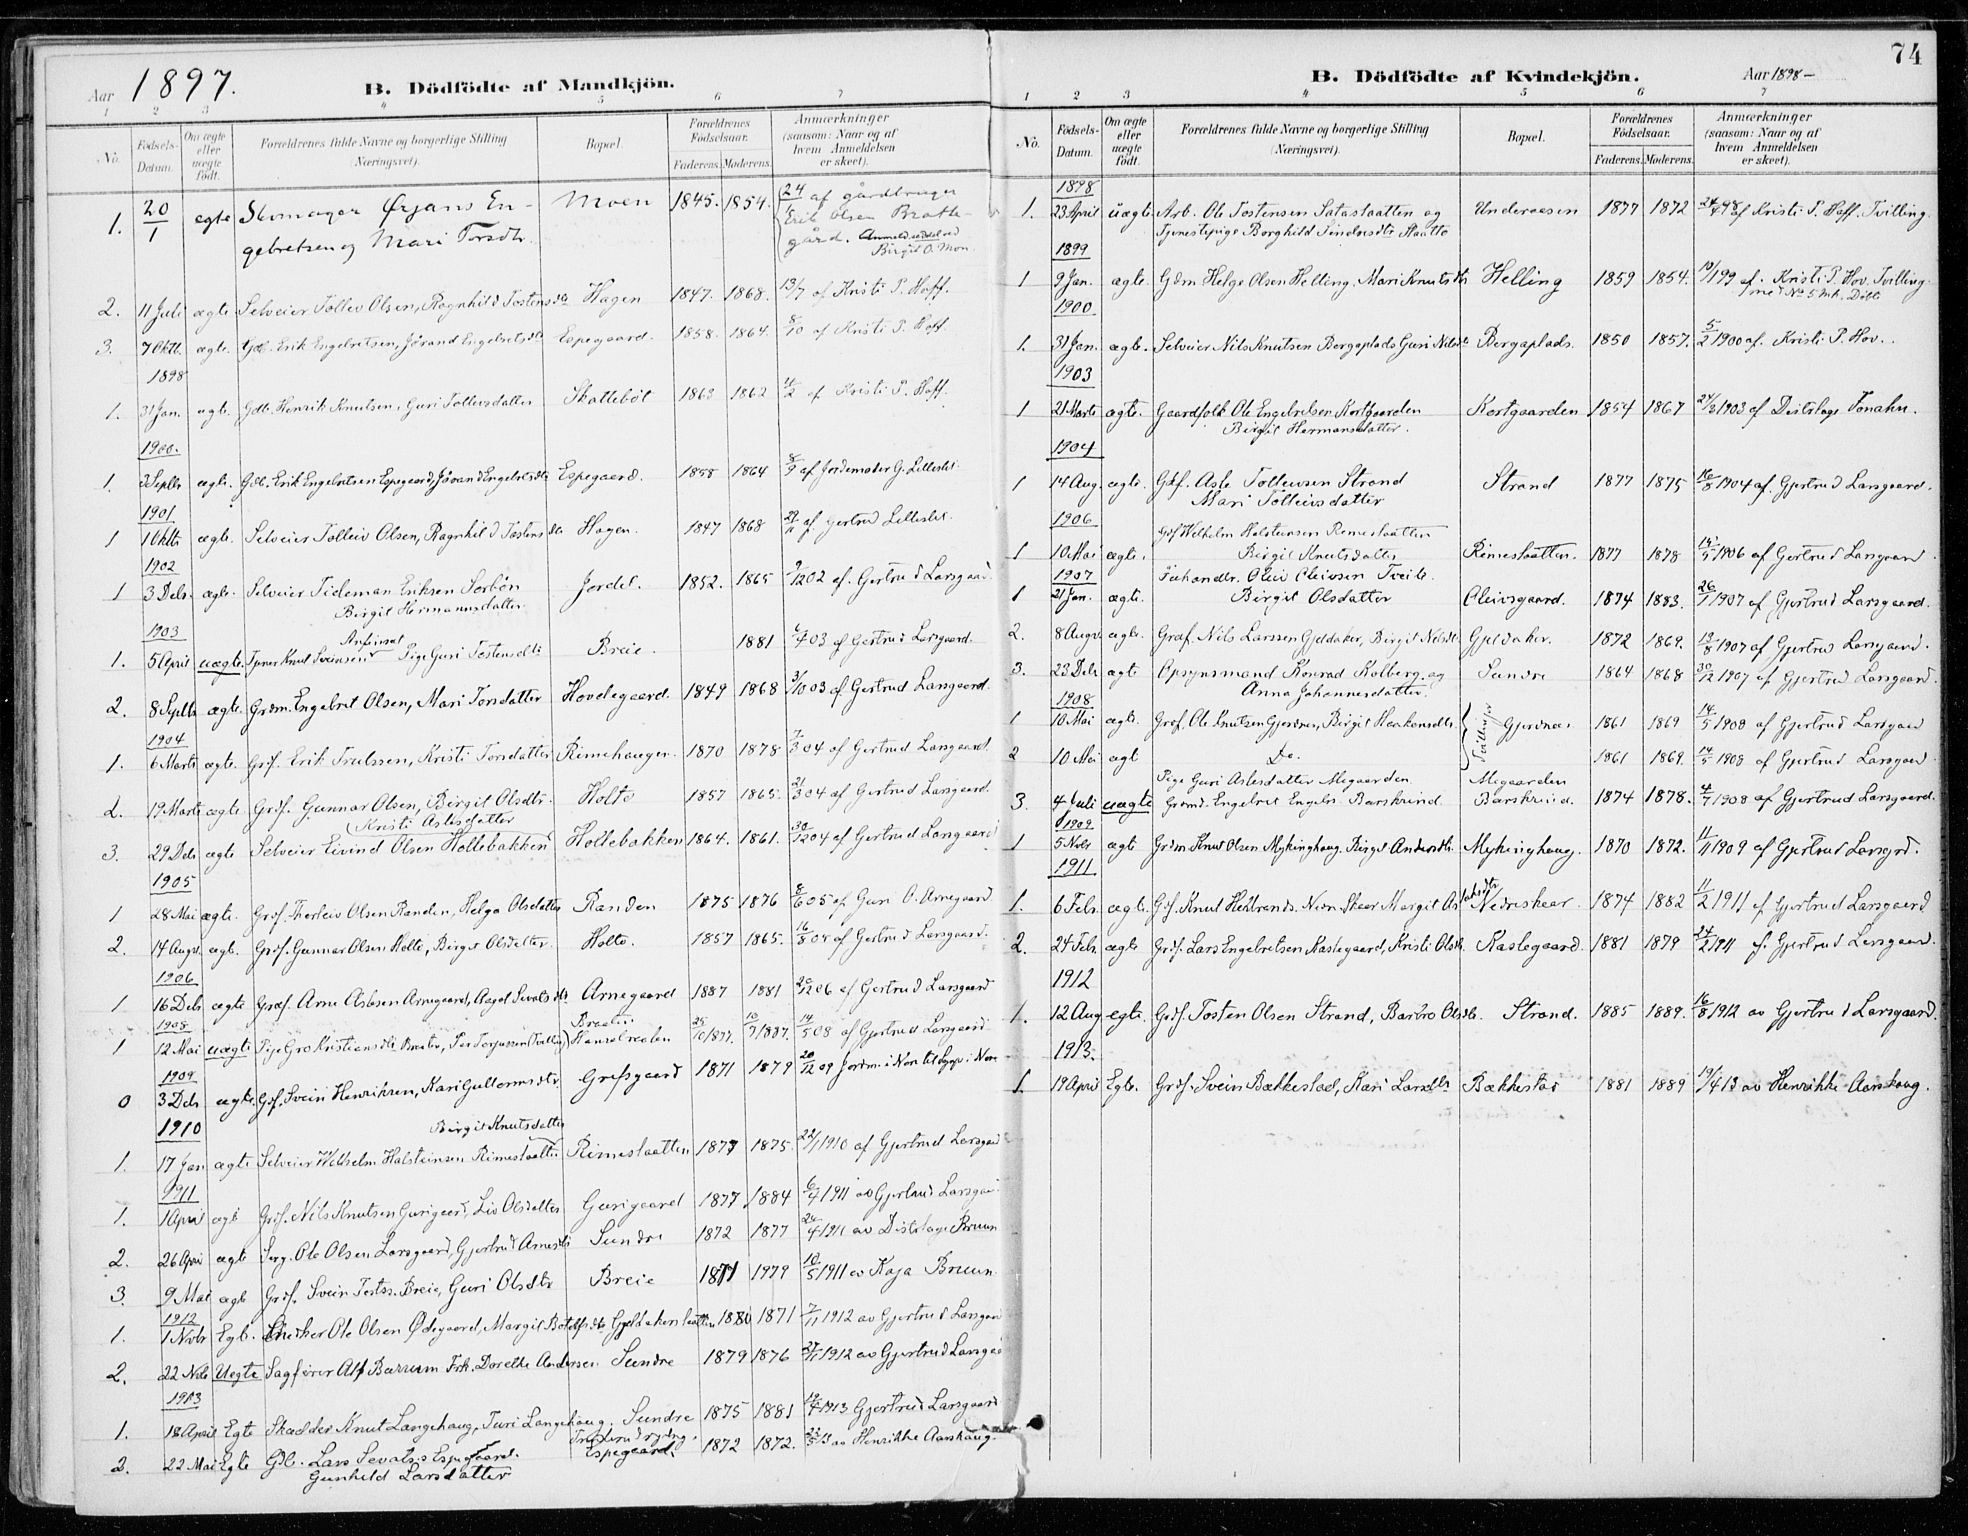 Aar 1897. B. Dödfödte af Mandkjön.
1 2 3 4 5 6 7
No. Födsels-Datum. Om ægte eller uægte födt. Forældrenes fulde Navne og borgerlige Stilling (Næringsvei). Bopæl. Forældrenes Födselsaar. Faderens. Moderens. Anmærkninger (saasom: Naar og af hvem Anmeldelsen er skeet).
1. 20/1 egte Skomager Ørjans En- Moen 1845. 1854. 24/1 af gårdbruger
gebretsen og Mari Torsdtr. Erik Olsen Bratte-
gård. Anmeldseddel ved
Birgit O. Moen.
2. 11 Juli ægte Selveier Tollev Olsen, Ragnhild Tostensdtr Hagen 1847. 1868. 13/7 af Kristi P. Hoff.
3. 7 Oktb. ægte. Gdb. Erik Engebretsen, Jørand Engebretsdtr Espegaard. 1858. 1864. 8/10 af Kristi P. Hoff
1898
1. 31 Jan. ægte. Gdb. Henrik Knutsen, Guri Tollevsdatter Skattebøl 1863 1862 4/2 af Kristi P. Hoff.
1900.
1. 3 Septbr ægte. Gdb. Erik Engebretsen Espegaard, Jørand Engebretsdtr Espegaard. 1858 1864 8/9 af Jordemoder G. Lilleslet.
1901
1 1 Oktbr ægte. Selveier Tolleiv Olsen, Ragnhild Tostensdtr Hagen. 1847 1868 af Gertrud Lilleslet.
1902
1 3 Debr. ægte. Selveier Tideman Eriksen Sorbøn Jordet. 1852. 1865 9/12 02 af Gertrud Larsgaard
Birgit Hermannsdatter
1903
1. 5 April uægte. Tjener Knut Svensen Pige Guri Tostensdtr Breie. 1881 6/4 03 af Gertrud Larsgaard.
2. 8 Septbr. ægte. Grdm. Engebret Olsen, Mari Torsdatter Hovdegaard. 1849 1868 3/10 03 af Gertrud Larsgaard.
1904
1. 6 Marts ægte. Grdf. Erik Trulssen, Kristi Torsdatter Rimehaugen. 1870 1878 7/3 04 af Gertrud Larsgaard.
2. 19 Marts ægte Grdf. Gunnar Olsen, Birgit Olsdtr. Holto 1857 1865. 21/3 04 af Gertrud Larsgaard.
Kristi Aslesdatter
3. 29 Debr ægte Selveier Eivind Olsen Hollebakken Hollebakken 1864. 1861. 30/12 04 af Gertrud Larsgaard
1905
1 28 Mai ægte. Grdf. Thorleiv Olsen Randen, Helga Olsdatter Randen 1875 1876 8/6 05 af Guri O. Arnegaard
2. 14 Augus. ægte. Grdf. Gunnar Olsen Holto, Birgit Olsdatter. Holto. 1857 1865. 16/8 05 af Gertrud Larsgaard.
1906
1 16 Debr ægte Grdf. Arne Aslesen Arnegaard, Aagot Sevatsdtr Arnegaard 1887 1881 20/12 06 af Gertrud Larsgaard
1908 Braaten
1 12 Mai uægte Pige Gro Kristiansdtr Braaten, Per Torjussen (Tvilling) 25/10 1877. 10/7 1887. 14/5 08 af Gjertrud Larsgaard
1909
0 3 Debr ægte. Grdf. Svein Henriksen, Kari Guttormsdtr. Grøfsgaard 1871 1879 20/12 09 Jordm. i Nore
1910 Birgit Knutsdatter
1. 17 Jan ægte Selveier Wilhelm Halsteinsen Rimeslaatten Rimeslaatten 1877 1875. 22/1 1910 af Gjertrud Larsgaard
1911
1. 1 April ægte Grdf. Nils Knutsen Gurigaard, Liv Olsdatter Gurigaard 1877 1884 6/4 1911 av Gjertrud Larsgaard
2. 26 April ægte Ole Olsen Larsgaard, Gjertrud Arnesdtr Sundre 1872 1877 26/4 1911 av Distrlæge Bruun
3. 9 Mai ægte Grdf. Svein Tostss. Breie, Guri Olsdtr Breie 1871 1979 10/5 1911 av Kaja Bruun.
1912
1. 1 Nvbr Egte. Snedker Ole Olsen Ødegaard, Margit Botolfsdtr Gjeldakerslaatten 1880 1871 7/11 1912 av Gjertrud Larsgaard
2. 22 Nvbr Uegte Sagfører Alf Barrum Frk. Dorethe Andersen Sundre 1879 1876 27/11 1912 av Gjertrud Larsgaard
1913
1. 18 April Egte Skrædder Knut Langehaug, Turi Langehaug. Sundre 1875 1881 19/4 1913 Gjertrud Larsgaard
2. 22 Mai Egte Gdb. Lars Sevatss Espegaard. Espegaard 1872 1872. 23/5 13 av Henrikke Aarshaug.
Gunhild Larsdatter
74
B. Dödfödte af Kvindekjön. Aar 1898 —
1 2 3 4 5 6 7
No. Födsels-Datum. Om ægte eller uægte födt. Forældrenes fulde Navne og borgerlige Stilling (Næringsvei). Bopæl. Forældrenes Födselsaar. Faderens. Moderens. Anmærkninger (saasom: Naar og af hvem Anmeldelsen er skeet).
1898
1. 23 April uægte Arb. Ole Tostensen Sataslaatten og Underaasen 1877 1872 24/4 98 af Kristi P. Hoff. Tvilling.
Tjenestepige Borghild Sindresdtr Slaatto
1899
1 9 Jan. ægte. Gdm. Helge Olsen Helling. Mari Knutsdtr Helling 1859 1854. 10/1 99 af. Kristi P. Hov. Tvilling
med No 5 Mk. Døbt
1900
1. 31 Jan. ægte. Selveier Nils Knutsen Bergaplads Guri Nilsdtr Bergaplads. 1850 1857. 5/2 1900 af. Kristi P. Hov.
1903
1 21 Marts ægte. Gaardfolk Ole Engebretsen Kortgaarden Kortgaarden 1854 1867 24/3 1903 af Distrlæge Tonahn.
Birgit Hermansdatter.
1904
1 14 Aug. ægte. Gdf. Asle Tolleivsen Strand Strand 1877 1875 16/8 1904 af Gjertrud Larsgaard.
Mari Tolleivsdatter
1906 Grdf Wilhelm Halsteinsen Rimeslaatten
1 10 Mai ægte. Birgit Knutsdatter Rimeslaatten. 1877 1878 14/5 1906 af Gjertrud Larsgaard
1907 Fæhandlr. Oleiv Oleivsen Tveito.
1 21 Jan. ægte. Birgit Olsdatter Oleivsgaard. 1874 1883. 26/1 1907 af Gjertrud Larsgaard.
2. 8 Augus ægte. Grdf. Nils Larssen Gjeldaker, Birgit Nilsdtr. Gjeldaker. 1872 1869. 13/8 1907 af Gjertrud Larsgaard.
3. 23 Debr ægte Opsynsmand Konrad Kolberg og Sundre 1864 1868 30/12 1907 af Gjertrud Larsgaard.
Anna Johannesdatter.
1908
1 10 Mai ægte. Grdf. Ole Knutsen Gjerdnes, Birgit Haakensdtr Tvillinger Gjerdnes 1861 1869 14/5 1908 af Gjertrud Larsgaard
2 10 Mai ægte Do. 1861 1869. 14/5 1908 af Gjertrud Larsgaard.
Pige Guri Aslesdatter Megaarden Megaarden
3. 4 Juli uægte Grdmd. Engebret Engebr. Barskrind. Barskrind. 1874 1878. 4/7 1908 af Gjertrud Larsgaard.
1909
1 5 Nvbr ægte Grdm. Knut Olsen Mykinghaug, Birgit Andersdtr. Mykinghaug. 1870 1872. 11/11 1909 af Gjertrud Larsgrd.
1911
1. 6 Febr. ægte. Grdf. Knut Hildbrands. Nedr. Skaar Margit Aslaksdtr Nedreskaar 1874 1882 11/2 1911 af Gjertrud Larsgaard
2. 24 Febr. ægte Grdf. Lars Engebretsen Kastegaard, Kristi Olsdtr. Kastegaard. 1881 1879 24/2 1911 af Gjertrud Larsgaard.
1912
1. 12 Aug egte. Grdf. Tosten Olsen Strand, Barbro Olsdtr. Strand. 1885 1889. 16/8 1912 av Gjertrud Larsgaard.
1913.
1. 19 April Egte. Grdf. Svein Bækkestad, Kari Larsdtr Bækkestad 1881 1889 19/4 13 av Henrikke Aarshaug.